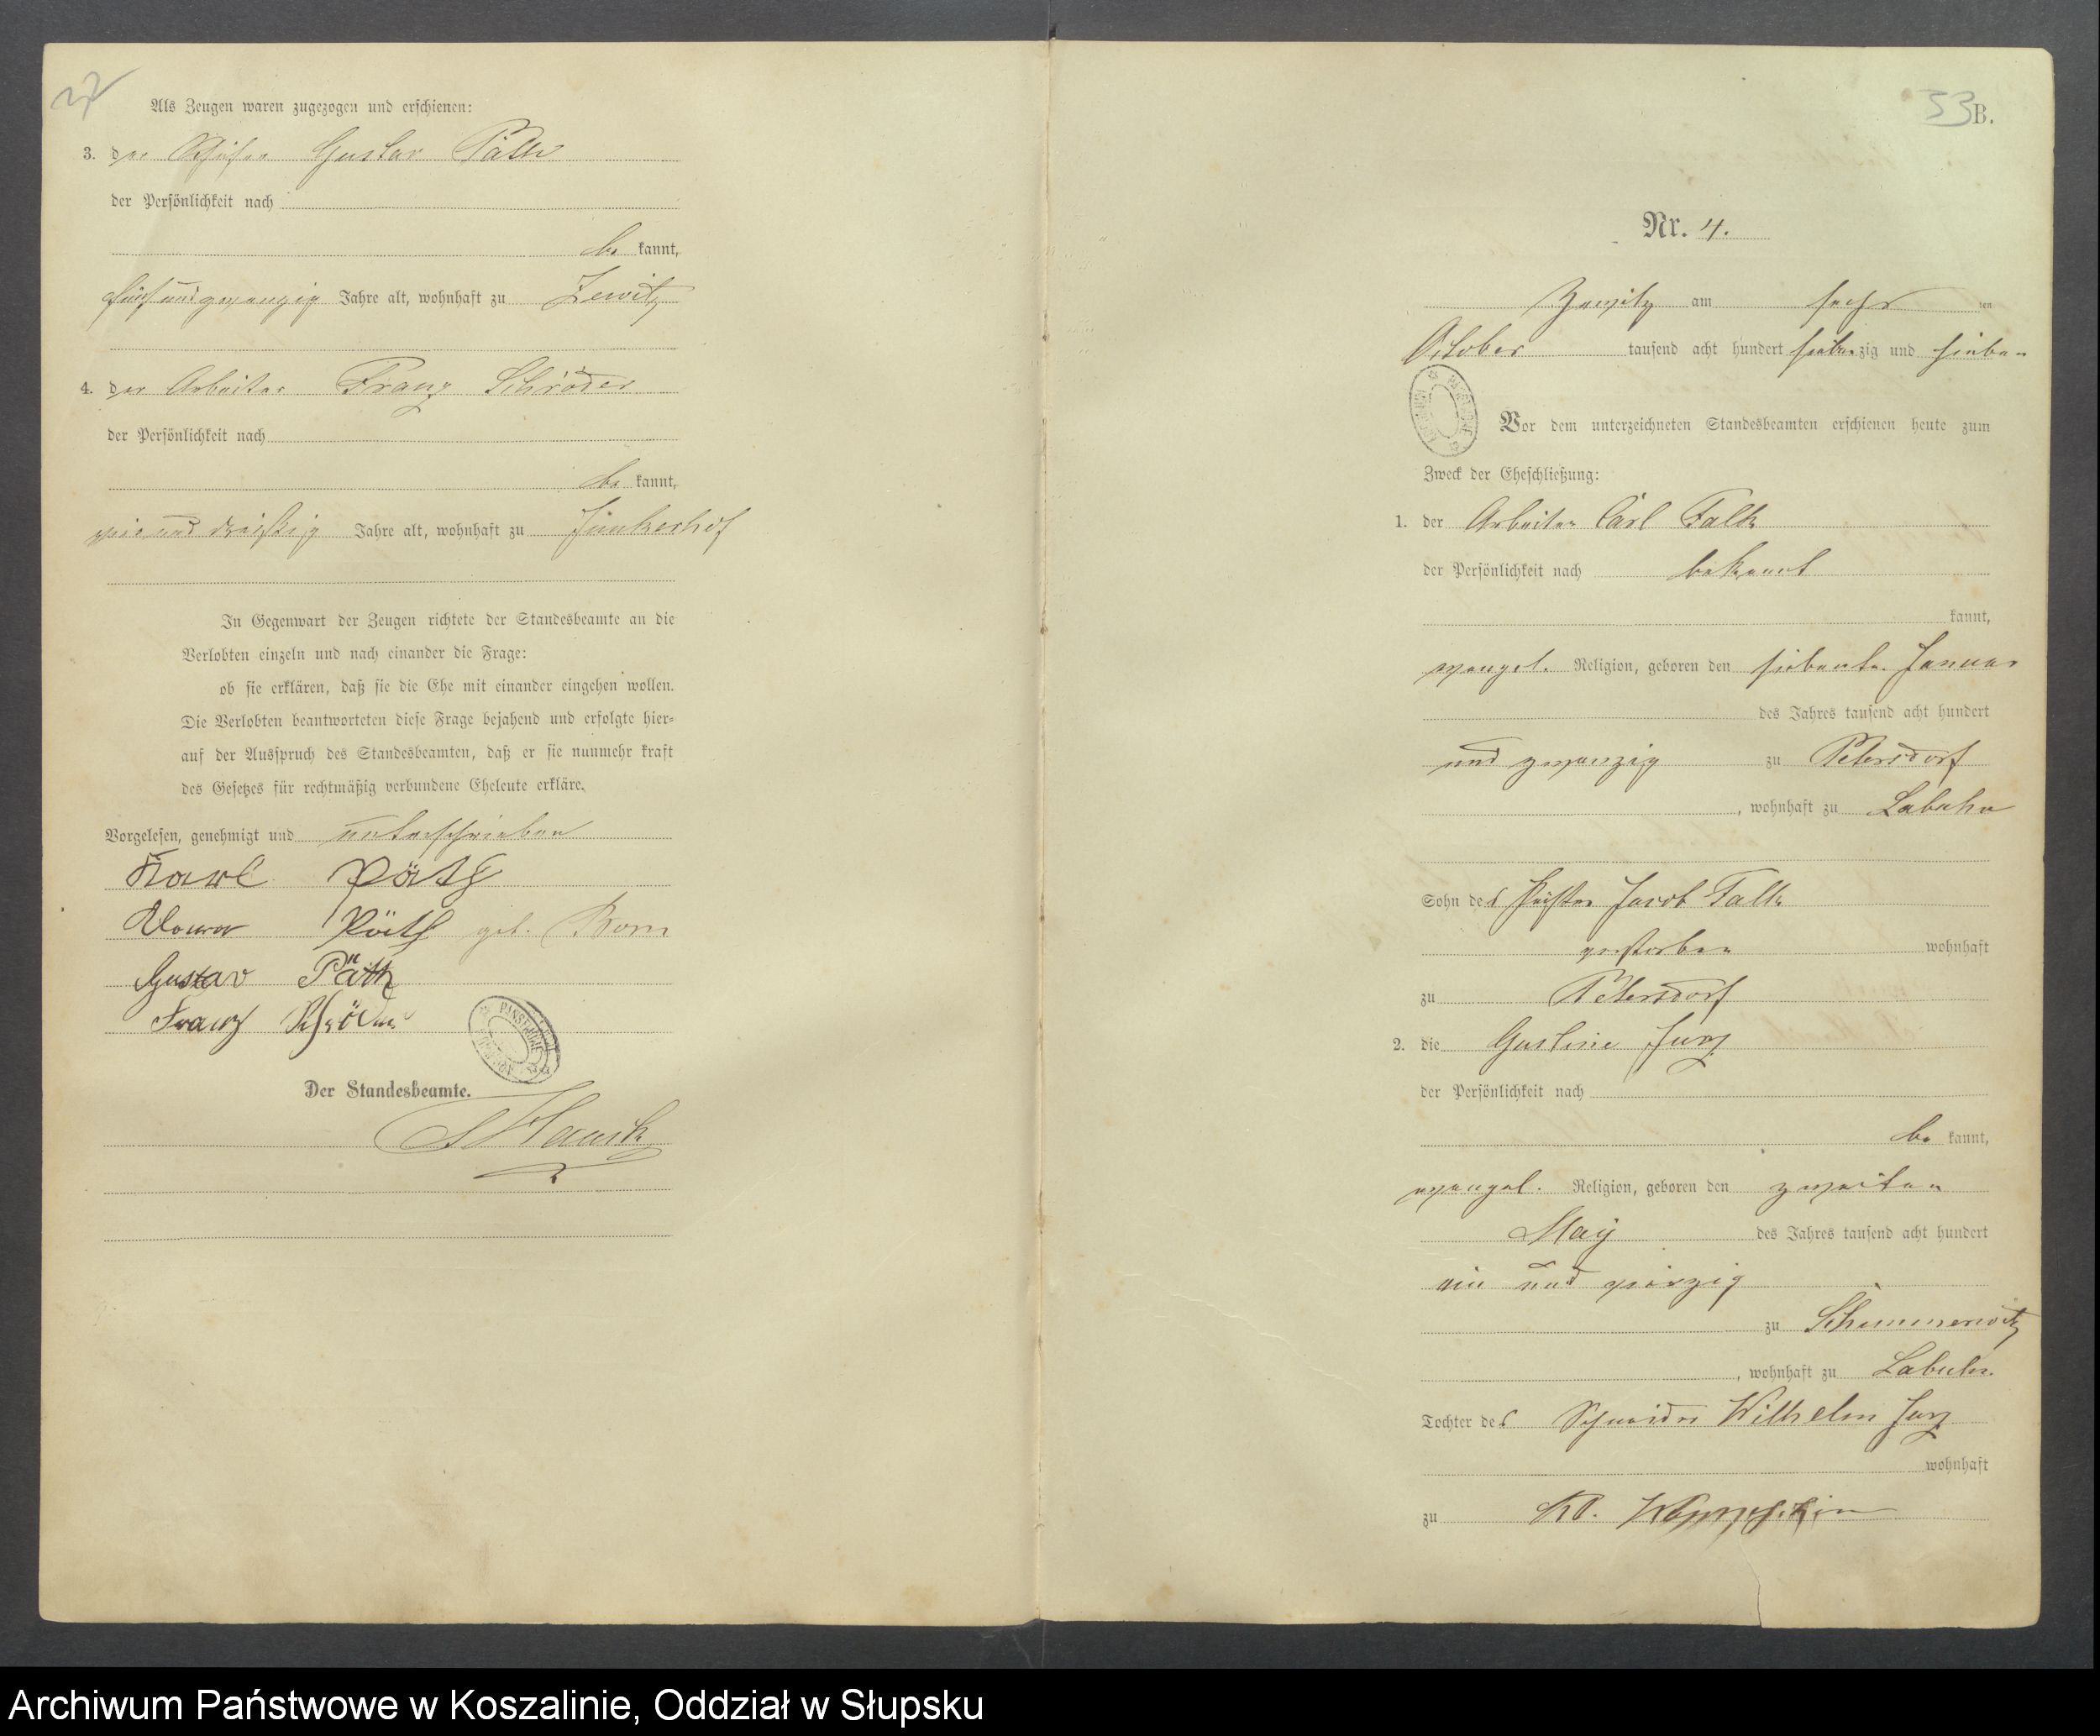 Als Zeugen waren zugezogen und erschienen:
3. der Schäfer Gustav Päth
der Persönlichkeit nach
be kannt,
fünfundzwanzig Jahre alt, wohnhaft zu Zewitz
4. der Arbeiter Franz Schröder
der Persönlichkeit nach
be kannt,
vierunddreißig Jahre alt, wohnhaft zu Junkerhof
In Gegenwart der Zeugen richtete der Standesbeamte an die
Verlobten einzeln und nach einander die Frage:
ob sie erklären, daß sie die Ehe mit einander eingehen wollen.
Die Verlobten beantworteten diese Frage bejahend und erfolgte hier-
auf der Ausspruch des Standesbeamten, daß er sie nunmehr kraft
des Gesetzes für rechtmäßig verbundene Eheleute erkläre.
Vorgelesen, genehmigt und unterschrieben
Karl Päth
Päth geb. Born
Gustav Päth
Franz Schröder
Der Standesbeamte.
33 B.
Nr. 4.
Zewitz am sechs ten
October tausend acht hundert siebenzig und sieben
Vor dem unterzeichneten Standesbeamten erschienen heute zum
Zweck der Eheschließung:
1. der Arbeiter Carl Falk
der Persönlichkeit nach bekannt
kannt,
evangel. Religion, geboren den siebente Januar
des Jahres tausend acht hundert
und zwanzig zu Petersdorf
, wohnhaft zu Labuhn
Sohn des Jacob Falk
verstorben wohnhaft
zu Petersdorf
2. die Gustine Jurz
der Persönlichkeit nach
be kannt,
evangel. Religion, geboren den zweiten
May des Jahres tausend acht hundert
ein und vierzig
zu Schimmerwitz
, wohnhaft zu Labuhn
Tochter des Schneider Wilhelm Jurz
wohnhaft
zu Kl.
Archiwum Państwowe w Koszalinie, Oddział w Słupsku